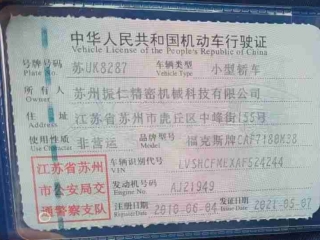 中华人民共和国机动车行驶证
Vehicle License of the People's Republic of China
号牌号码 苏UK8287 车辆类型 小型轿车
Plate No. Vehicle Type
所有人 苏州振仁精密机械科技有限公司
Owner
住址 江苏省苏州市虎丘区中峰街155号
Address
使用性质 非营运 品牌型号 福克斯牌CAF7180M38
Use Character Model
江苏省苏州 车辆识别代号 LVSHCFMEXAF524244
VIN
市公安局交 发动机号码 AJZ1949
Engine No.
通警察支队 注册日期 2010-06-04 发证日期 2021-05-07
Register Date Issue Date